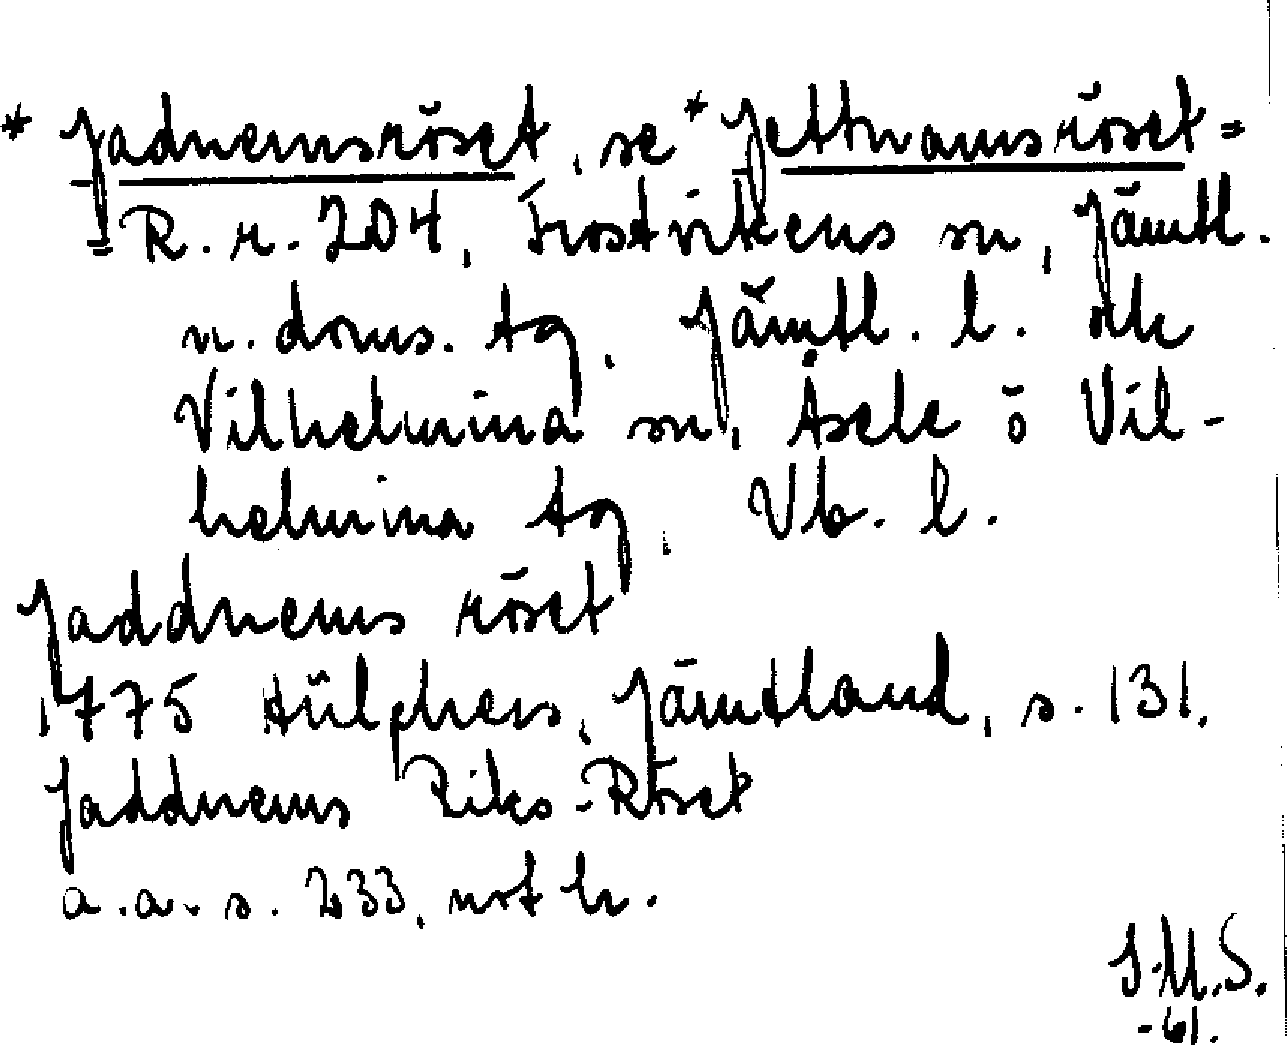 * Jadnemsröset, se * Jettnamsröset =
= R. r. 204, Frostvikens sn, Jämtl.
n. doms. tg, Jämtl. l. ok
Vilhelmina sn, Åsele o Vil-
helmina tg, Vb. l.
Jaddnems röset
1775 Hülphers, Jämtland, s. 131.
Jaddnems Riks-Röset
a.a. s. 233, not h.
J.M.S.
-61.